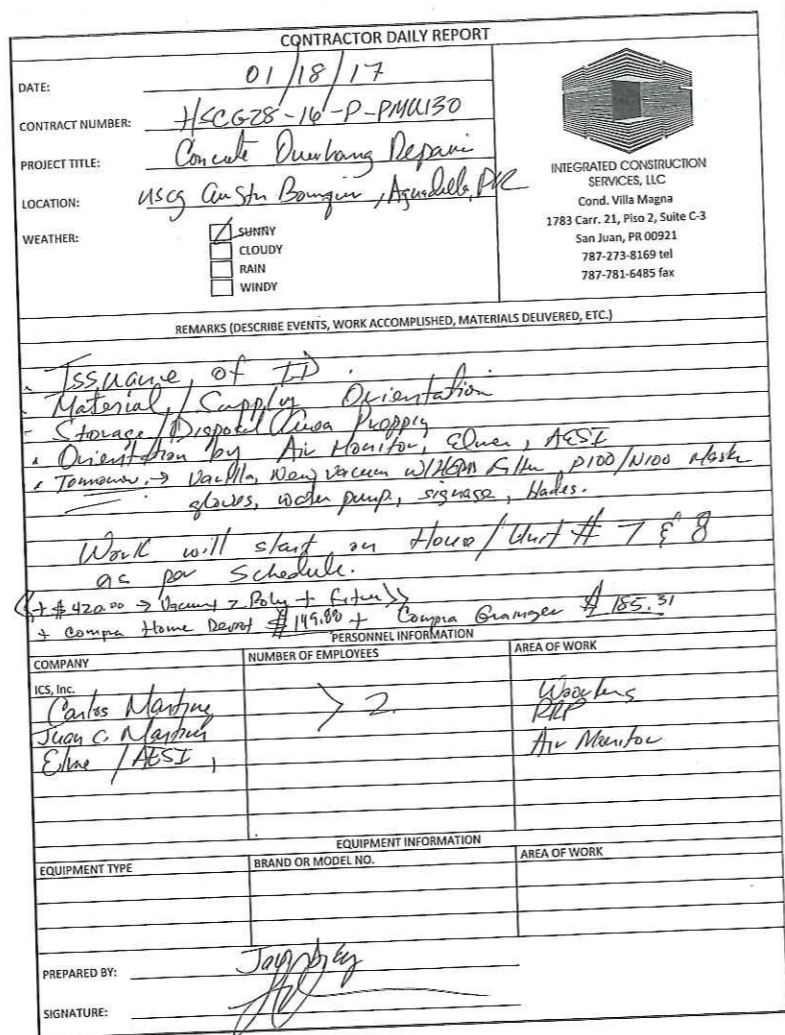 CONTRACTOR DAILY REPORT
DATE: 01/18/17
CONTRACT NUMBER: HSCG28-16-P-PMU130
PROJECT TITLE: Concrete Overhang Repair
LOCATION: USCG Borinquen, Aguadilla, PR
WEATHER:
SUNNY
CLOUDY
RAIN
WINDY
INTEGRATED CONSTRUCTION
SERVICES, LLC
Cond. Villa Magna
1783 Carr. 21, Piso 2, Suite C-3
San Juan, PR 00921
787-273-8169 tel
787-781-6485 fax
REMARKS (DESCRIBE EVENTS, WORK ACCOMPLISHED, MATERIALS DELIVERED, ETC.)
- Issuance of ID.
- Material / Supply Orientation
- Storage / Disposal Area
- Orientation by Air Monitor, Elmer, AESI
- Tomorrow → New vacuum w/ HEPA Filter, P100/N100 Mask
gloves, water pump, signage, blades.
Work will start on House/Unit # 7 & 8
as per Schedule.
+ $420.00 → Vacuum + Poly + filter
+ Compra Home Depot $149.88 + Compra Grainger $185.31
PERSONNEL INFORMATION
COMPANY NUMBER OF EMPLOYEES AREA OF WORK
ICS, Inc.
Carlos Martinez
Juan C. Martinez > 2 RRP
Elmer / AESI Air Monitor
EQUIPMENT INFORMATION
EQUIPMENT TYPE BRAND OR MODEL NO. AREA OF WORK
PREPARED BY:
SIGNATURE: